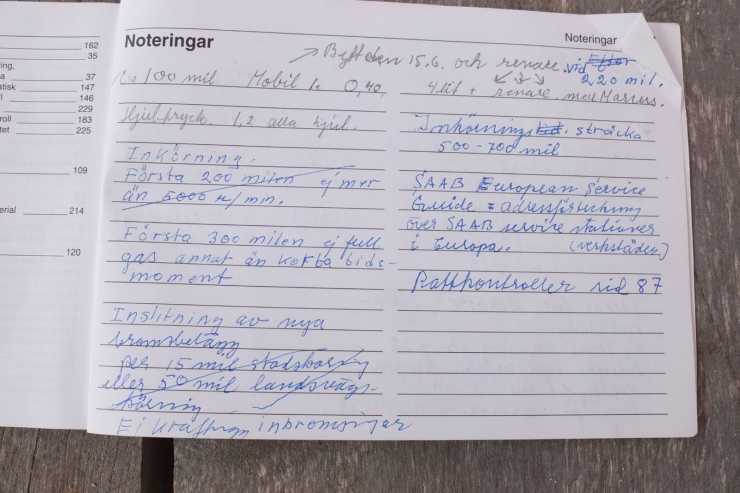 162
35
ng,
a 37
tisk 147
l 146
229
roll 183
tet 225
109
erial 214
120
Noteringar
Byt den 15.6. och renare.
100 mil Mobil 1. 0,40,
Hjultryck. 1,2 alla hjul.
Inkörning.
Första 200 milen ej mer
än 5000 r/min.
Första 300 milen ej full
gas annat än korta tids-
moment
Inslitning av nya
bromsbelägg
per 15 mil stadskörning
eller 50 mil landsvägs-
körning
Ej kraftiga inbromsningar
Noteringar
Efter
vid 220 mil.
4 lit + renare. med
Inkörnings sträcka
500-700 mil
SAAB European Service
Guide = adressförteckning
över SAAB service stationer
i Europa. (verkstäder)
Rattkontroller sid 87